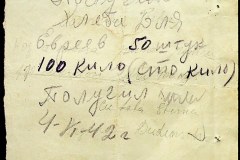 Хлеба Для
Евреев 50 штук
100 кило (сто кило)
Получил
4-VI-42 г